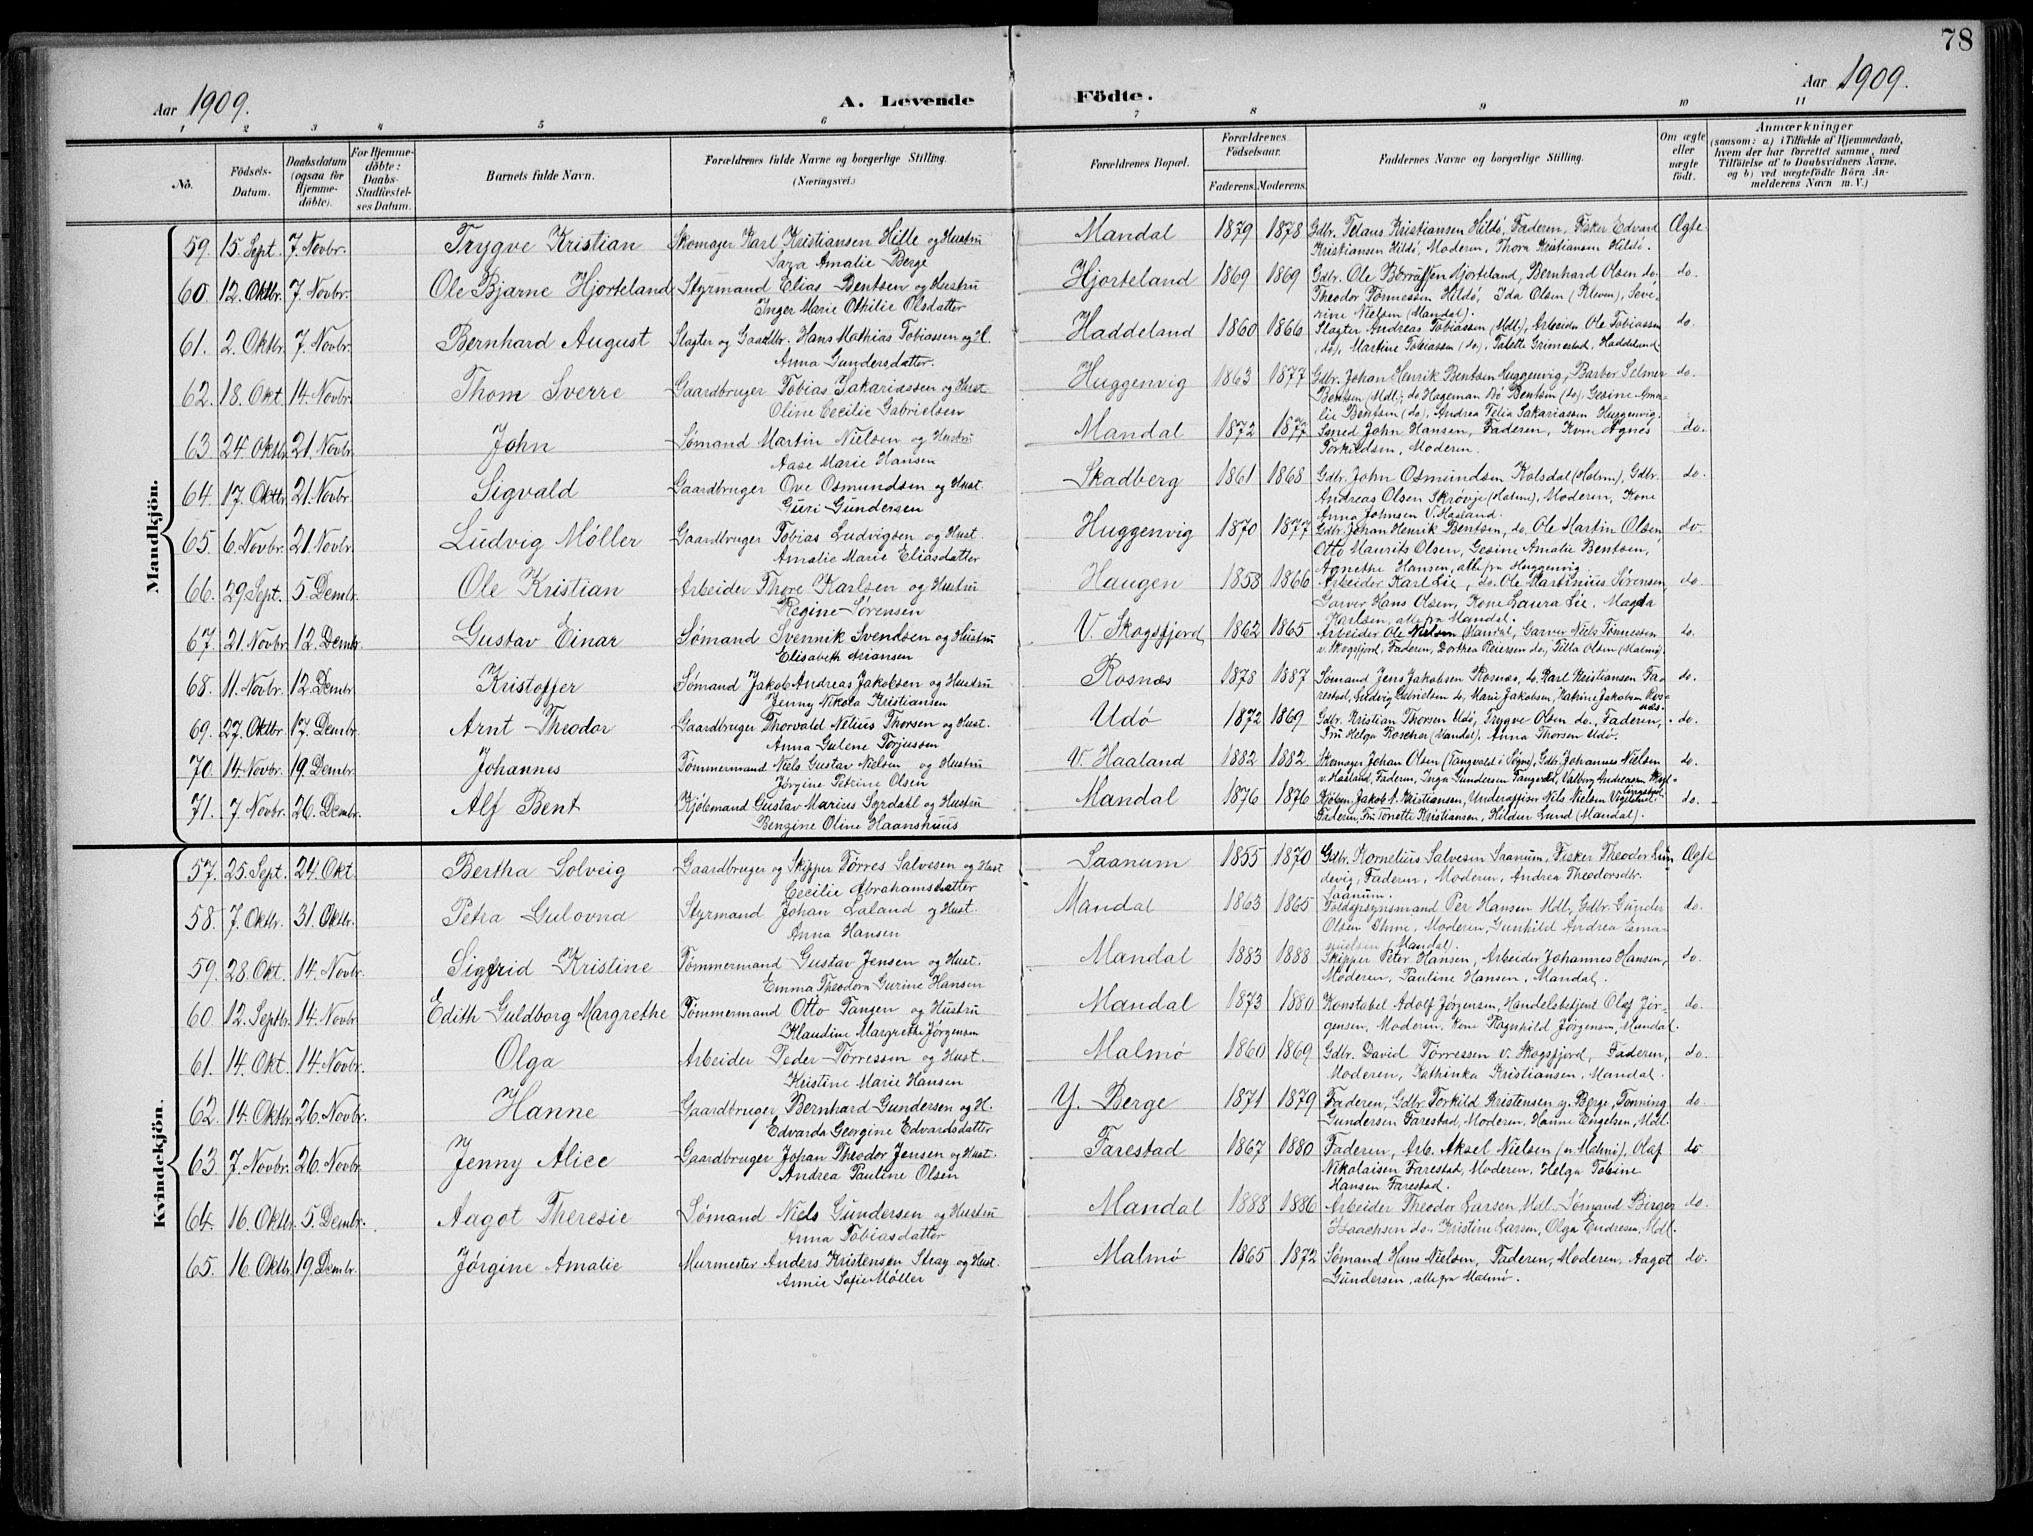 78
Aar 1909.
A. Levende Födte.
Aar 1909.
1 2 3 4 5 6 7 8 9 10 11
No.
Födsels-Datum.
Daabsdatum (ogsaa for Hjemme-döbte).
For Hjemme-döbte: Daabs-Stadfæstel-ses Datum.
Barnets fulde Navn.
Forældrenes fulde Navne og borgerlige Stilling. (Næringsvei.)
Forældrenes Bopæl.
Forældrenes Födselsaar.
Faderens. Moderens.
Faddernes Navne og borgerlige Stilling.
Om ægte eller uægte födt.
Anmærkninger (saasom: a) i Tilfælde af Hjemmedaab, hvem der har forrettet samme, med Tilföielse af to Daabsvidners Navne, og b) ved uægtefödte Börn Anmelderens Navn m. V.)
Mandkjön.
59. 15. Sept. 7. Novbr. Trygve Kristian Skomager Karl Kristiansen Hille og Hustru Mandal 1879 1878 Gdbr. Telaus Kristiansen Hildö, Faderen, Fisker Edvard Ægte
Sara Amalie Berge Kristiansen Hildö, Moderen, Thora Kristiansen Hildö.
60. 12. Oktbr. 7. Novbr. Ole Bjarne Hjorteland Styrmand Elias Bentsen og Hustru Hjorteland 1869 1869 Gdbr. Ole Hjorteland, Bernhard Olsen do. do.
Inger Marie Othilie Olsdatter Theodor Tönnessen Hildö, Ida Olsen (Kleven), Seve-
rine Nielsen (Mandal).
61. 2. Oktbr. 7. Novbr. Bernhard August Slagter og Gaardbr. Hans Mathias Tobiassen og H. Haddeland 1860 1866 Slagter Andreas Tobiassen (Mdl.), Arbeider Ole Tobiassen do.
Anna Gundersdatter. (do), Martine Tobiassen (do), Talette Grimestad, Haddeland
62. 18. Okt. 14. Novbr. Thom Sverre Gaardbruger Tobias Zakariassen og Hust Huggenvig 1863 1877 Gdbr. Johan Henrik Bentsen Huggenvig, Barber Selmer do.
Oline Cecilie Gabrielsen Bentsen (Mdl), do Hageman Bö Bentsen (do), Gesine Ama-
lie Bentsen (do), Andrea Felia Sakariassen Huggenvig.
63. 24. Oktbr. 21. Novbr. John Sømand Martin Nielsen og Hustru Mandal 1872 1877 Smed John Hansen, Faderen, Kone Agnes do.
Aase Marie Hansen Torkildsen, Moderen.
64. 17. Oktbr. 21. Novbr. Sigvald Gaardbruger Ove Osmundsen og Hust. Skadberg 1861 1868 Gdbr. John Osmundsen Kolsdal (Halsm), Gdbr. do.
Guri Gundersen Andreas Olsen Skrøvje (Halsm), Moderen, Kone
Anna Johnsen V. Hasland.
65. 6. Novbr. 21. Novbr. Ludvig Møller Gaardbruger Tobias Ludvigsen og Hust. Huggenvig 1870 1877 Gdbr. Johan Henrik Bentsen, do. Ole Martin Olsen do.
Amalie Marie Eliasdatter Otto Maurits Olsen, Gesine Amalie Bentsen,
Agnethe Hansen, alle fra Huggenvig.
66. 29. Sept. 5. Dembr. Ole Kristian Arbeider Thore Karlsen og Hustru Haugen 1858 1866 Arbeider Karl Lie, do. Ole Martinius Sørensen, do.
Regine Sørensen Garver Hans Olsen, Kone Laura Lie, Magda
Karlsen, alle fra Mandal.
67. 21. Novbr. 12. Dembr. Gustav Einar Sømand Svennik Svendsen og Hustru V. Skogsfjord 1862 1865 Arbeider Ole Nielsen Mandal, Garver Niels Tönnessen do.
Elisabeth Ariansen v. Skogsfjord, Faderen, Dortrea Reiersen do., Tilla Olsen (Malmö).
68. 11. Novbr. 12. Dembr. Kristoffer Sømand Jakob Andreas Jakobsen og Hustru Rosnæs 1878 1887 Sømand Jens Jakobsen Rosnæs, do. Karl Kristiansen Fa- do.
Jenny Nikola Kristiansen restad, Ludvig Gabrielsen do, Marie Jakobsen, Katrine Jakobsen Ros-
næs.
69. 27. Oktbr. 17. Dembr. Arnt Theodor Gaardbruger Thorvald Nelius Thorsen og Hust. Udö 1872 1869 Gdbr. Kristian Thorsen Udö, Trygve Olsen do., Faderen, do.
Anna Gulene Torjussen Fru Helga Roscher (Mandal), Anna Thorsen Udö.
70. 14. Novbr. 19. Dembr. Johannes Tömmermand Niels Gustav Nielsen og Hustru V. Haaland 1882 1882 Skomager Johan Olsen (Tangvald i Søgne), Gdbr. Johannes Nielsen do.
Jørgine Petrine Olsen v. Haaland, Faderen, Inga Gundersen Tangvald, Valborg Andreasen
71. 7. Novbr. 26. Dembr. Alf Bent Kjöbmand Gustav Marius Syrdahl og Hustru Mandal 1876 1876 Kjöbm. Jakob A. Kristiansen, Underoffiser Nils Nielsen Vigeland. do.
Benzine Oline Haanshuus Faderen, Fru Tonette Kristiansen, Hildur Lund (Mandal).
Kvindekjön.
57. 25. Sept. 24. Okt. Bertha Solveig Gaardbruger og Skipper Tørres Salvesen og Hust Saanum 1855 1870 Gdbr. Kornelius Salvesen Saanum, Fisker Theodor Lun- Ægte
Cecilie Abrahamsdatter devig, Faderen, Moderen, Andrea Theodorsdtr.
Saanum.
58. 7. Oktbr. 31. Oktbr. Petra Gulovna Styrmand Johan Laland og Hust. Mandal 1863 1865 Toldopsynsmand Per Hansen Mdl., Gdbr. Gunder do.
Anna Hansen Olsen Ihme, Moderen, Gunhild Andrea Ema-
nuelsen (Mandal).
59. 28. Okt. 14. Novbr. Sigfrid Kristine Tømmermand Gustav Jensen og Hust. Mandal 1883 1888 Skipper Peter Hansen, Arbeider Johannes Hansen, do.
Emma Theodora Gurine Hansen Moderen, Pauline Hansen, Mandal.
60. 12. Septbr. 14. Novbr. Edith Guldborg Margrethe Tømmermand Otto Tangen og Hustru Mandal 1873 1880 Konstabel Adolf Jørgensen, Handelsbetjent Olaf Jør- do.
Klaudine Margrethe Jørgensen gensen, Moderen, Kone Ragnhild Jørgensen, Mandal.
61. 14. Okt. 14. Novbr. Olga Arbeider Peder Tørressen og Hust. Malmø 1860 1869 Gdbr. David Tørressen v. Skogsfjord, Faderen, do.
Kristine Marie Hansen Moderen, Kathinka Kristiansen, Mandal.
62. 14. Oktbr. 26. Novbr. Hanne Gaardbruger Bernhard Gundersen og H. Y. Berge 1871 1879 Faderen, Gdbr. Torkild Kristensen y. Berge, Tönning do.
Edvarda Georgine Edvardsdatter Gundersen Farestad, Moderen, Hanne Engelsen, Mdl.
63. 7. Novbr. 26. Novbr. Jenny Alice Gaardbruger Johan Theodor Jensen og Hust. Farestad 1867 1880 Faderen, Arb. Aksel Nielsen (Malmö), Olaf do
Andrea Pauline Olsen Nikolaisen Farestad, Moderen, Helga Tobine
Hansen Farestad.
64. 16. Oktbr. 5. Dembr. Aagot Theresie Sømand Niels Gundersen og Hustru Mandal 1888 1886 Arbeider Theodor Larsen Mdl. Sømand Birger do.
Anna Tobiasdatter Isaachsen do., Kristine Larsen, Olga Endresen, Mdl.
65. 16. Oktbr. 19. Dembr. Jørgine Amalie Murmester Anders Kristensen Stray og Hust. Malmø 1865 1872 Sømand Hans Nielsen, Faderen, Moderen, Aagot do.
Amie Sofie Møller Gundersen, alle fra Malmø.